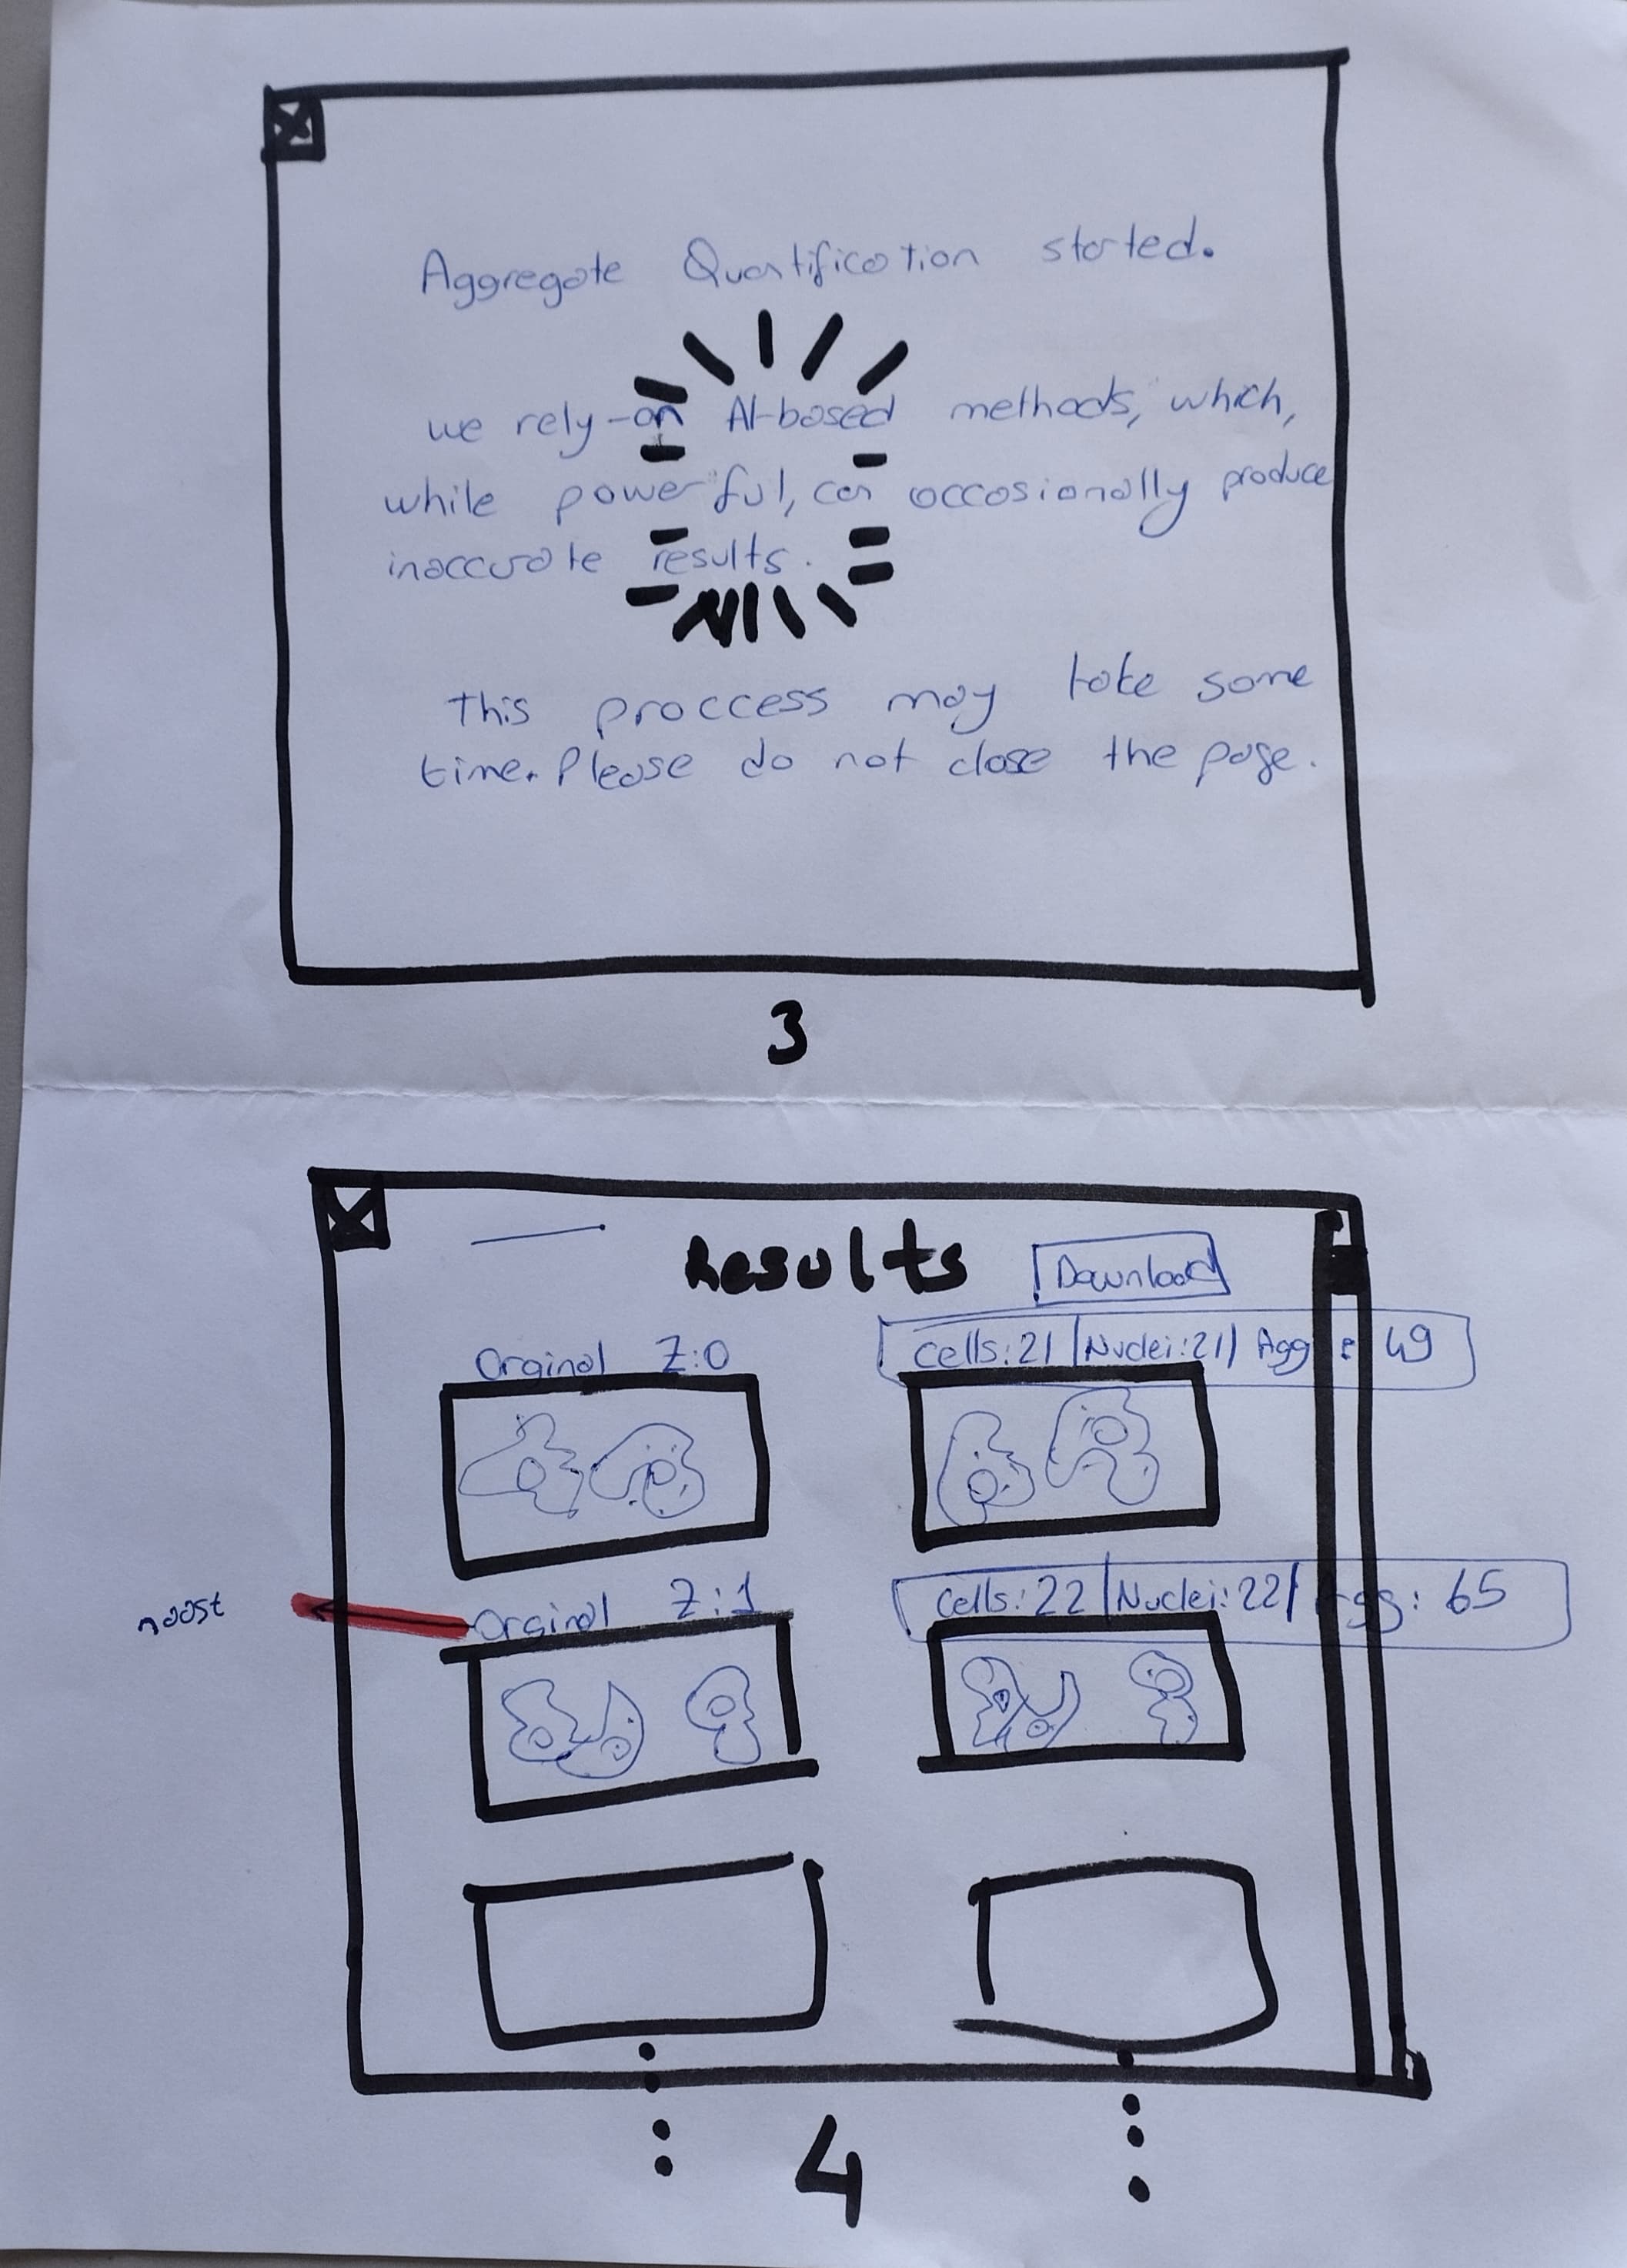 Aggregate Quantification started.
we rely-on AI-based methods, which,
while powerful, can occasionally produce
inaccurate results.
This proccess may take some
time. Please do not close the page.
3
Results
Download
Orginal Z:0
Cells:21 | Nuclei:21 | Agg : 49
Orginal Z:1
Cells:22 | Nuclei:22 | Agg: 65
4